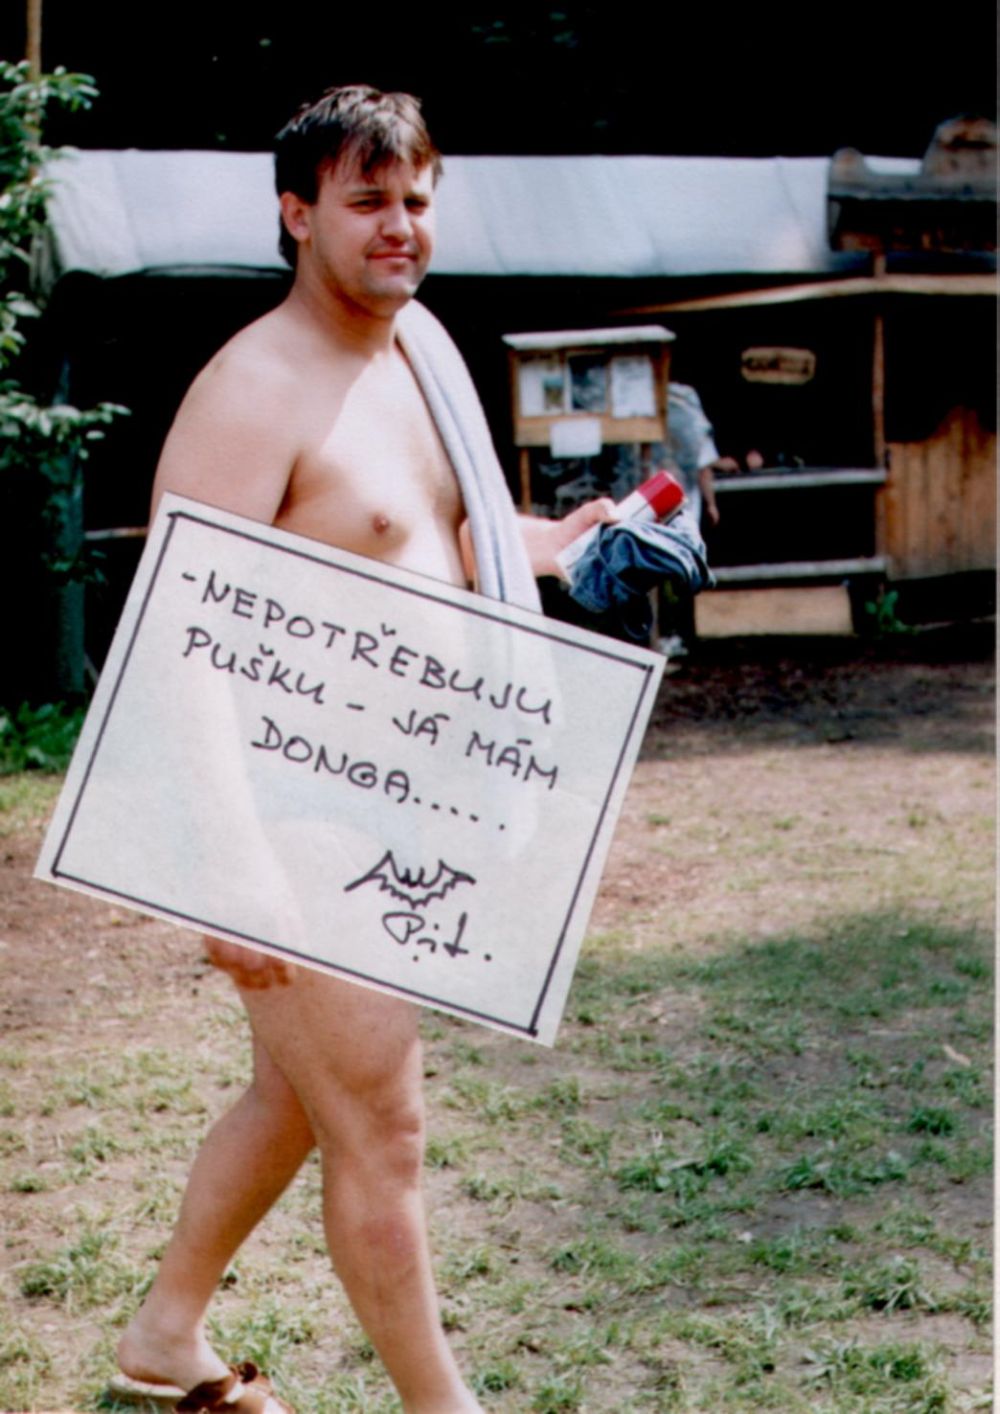 - NEPOTŘEBUJU
PUŠKU - JÁ MÁM
DONGA.....
Pit.